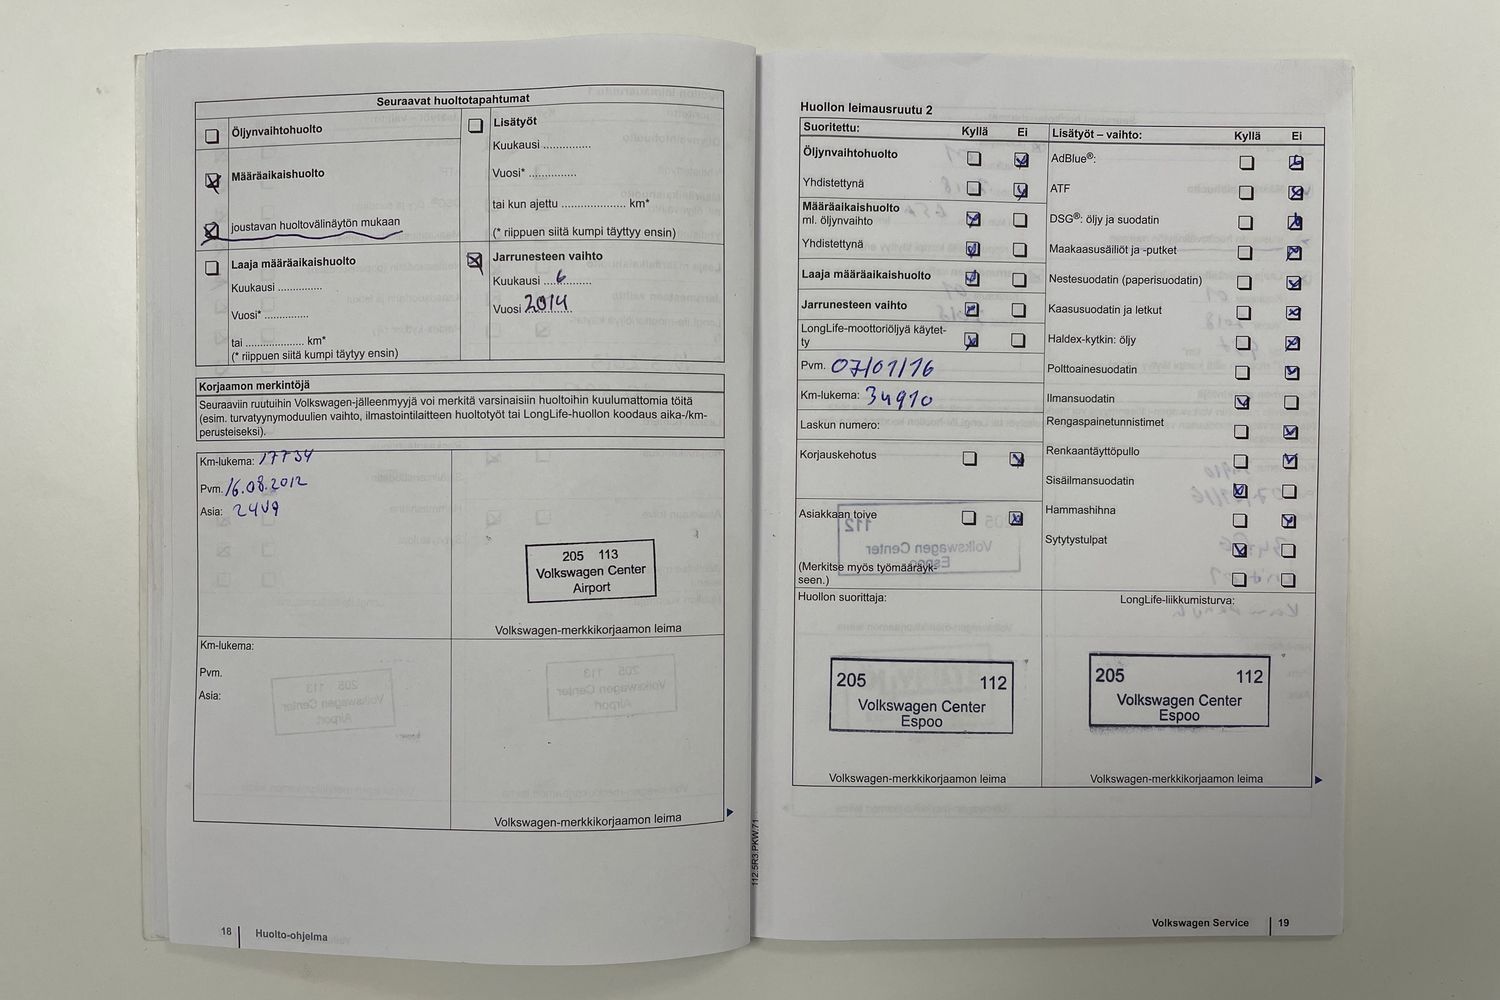 Seuraavat huoltotapahtumat
Öljynvaihtohuolto
Määräaikaishuolto
joustavan huoltovälinäytön mukaan
Laaja määräaikaishuolto
Kuukausi ..............
Vuosi* ...............
tai .................... km*
(* riippuen siitä kumpi täytyy ensin)
Lisätyöt
Kuukausi ...............
Vuosi* ...............
tai kun ajettu .................... km*
(* riippuen siitä kumpi täyttyy ensin)
Jarrunesteen vaihto
Kuukausi ...6.........
Vuosi 2014
Korjaamon merkintöjä
Seuraaviin ruutuihin Volkswagen-jälleenmyyjä voi merkitä varsinaisiin huoltoihin kuulumattomia töitä
(esim. turvatyynymoduulien vaihto, ilmastointilaitteen huoltotyöt tai LongLife-huollon koodaus aika-/km-
perusteiseksi).
Km-lukema: 17734
Pvm. 16.08.2012
Asia: 24V9
205 113
Volkswagen Center
Airport
Volkswagen-merkkikorjaamon leima
Km-lukema:
Pvm.
Asia:
Volkswagen-merkkikorjaamon leima
18 Huolto-ohjelma
112.5R3.PKW.71
Huollon leimausruutu 2
Suoritettu: Kyllä Ei
Öljynvaihtohuolto
Yhdistettynä
Määräaikaishuolto
ml. öljynvaihto
Yhdistettynä
Laaja määräaikaishuolto
Jarrunesteen vaihto
LongLife-moottoriöljyä käytet-
ty
Pvm. 07/01/16
Km-lukema: 34910
Laskun numero:
Korjauskehotus
Asiakkaan toive
(Merkitse myös työmääräyk-
seen.)
Lisätyöt – vaihto: Kyllä Ei
AdBlue®:
ATF
DSG®: öljy ja suodatin
Maakaasusäiliöt ja -putket
Nestesuodatin (paperisuodatin)
Kaasusuodatin ja letkut
Haldex-kytkin: öljy
Polttoainesuodatin
Ilmansuodatin
Rengaspainetunnistimet
Renkaantäyttöpullo
Sisäilmansuodatin
Hammashihna
Sytytystulpat
Huollon suorittaja:
205 112
Volkswagen Center
Espoo
Volkswagen-merkkikorjaamon leima
LongLife-liikkumisturva:
205 112
Volkswagen Center
Espoo
Volkswagen-merkkikorjaamon leima
Volkswagen Service 19